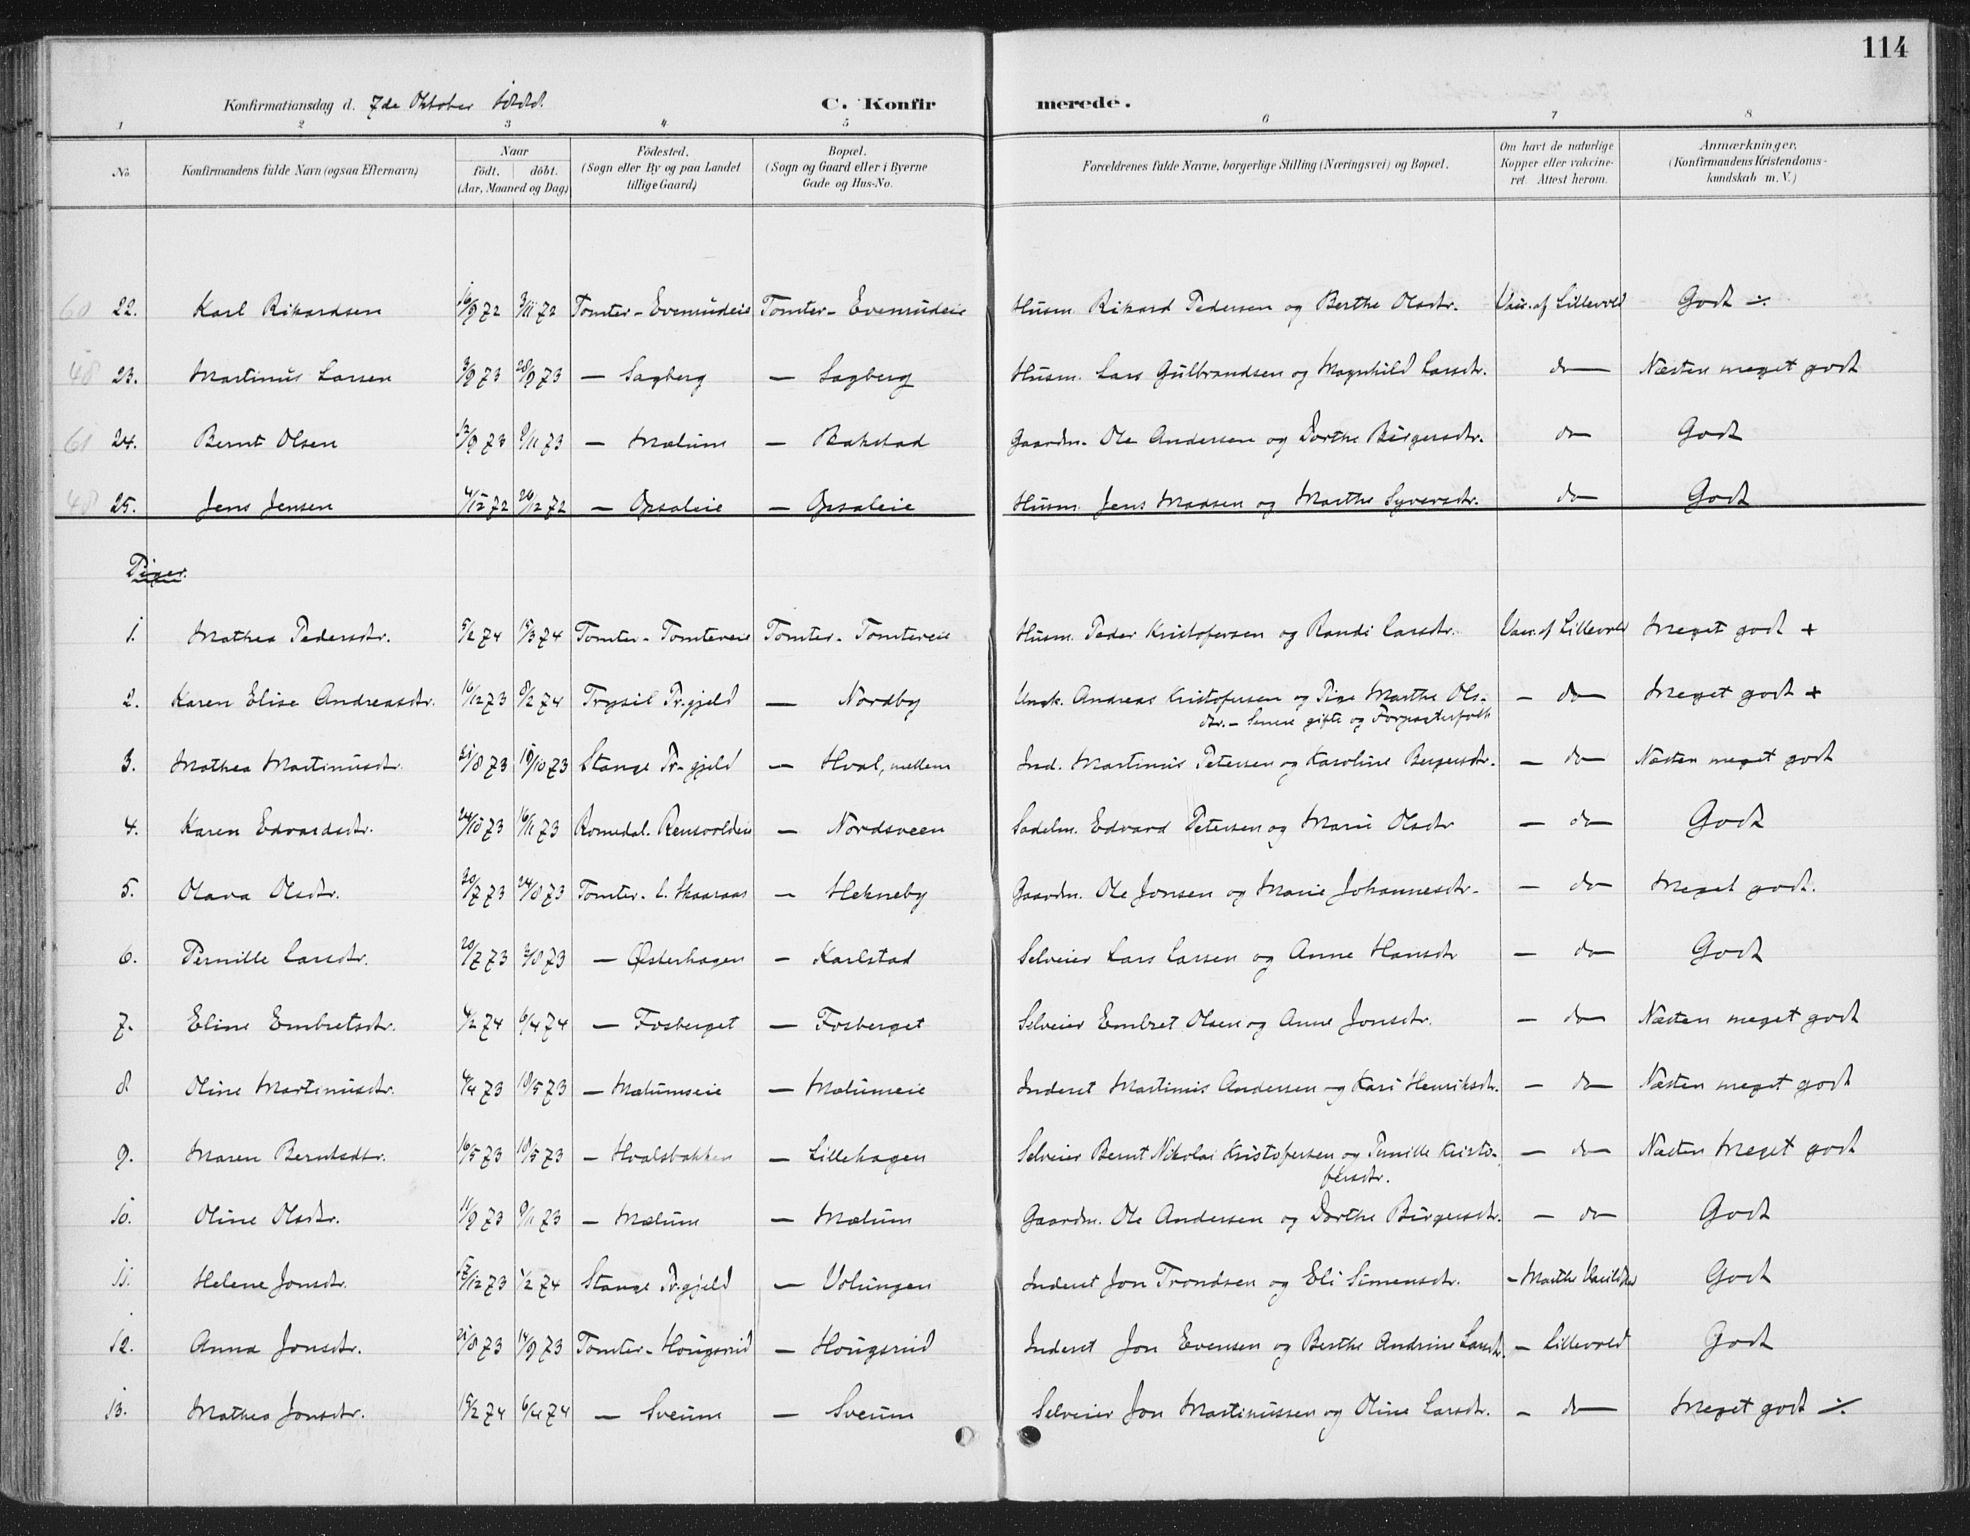 114
Konfirmationsdag d. 7de Oktober 1888.
C. Konfirmerede.
1 2 3 4 5 6 7 8
No. Konfirmandens fulde Navn (ogsaa Efternavn) Naar födt. döbt. (Aar, Maaned og Dag) Födested. (Sogn eller By og paa Landet tillige Gaard) Bopæl. (Sogn og Gaard eller i Byerne Gade og Hus-No. Forældrenes fulde Navne, borgerlige Stilling (Næringsvei) og Bopæl. Om havt de naturlige Kopper eller vakcineret. Attest herom. Anmærkninger. (Konfirmandens Kristendomskundskab m. V.)
60 22. Karl Rikardsen 16/9 72 3/11 72 Tomter - Evensrudeie Tomter - Evensrudeie Husm. Rikard Pedersen og Berthe Olsdtr. Vacc. af Lillevold Godt ./.
48 23. Martinus Larsen 3/9 73 28/9 73 — Sagberg — Sagberg Husm. Lars Gulbrandsen og Magnhild Larsdtr. do Næsten meget godt
61 24. Bernt Olsen 12/9 73 9/11 73 — Mælum — Bakstad Gaardm. Ole Andersen og Dorthe Børgersdtr. do Godt
48 25. Jens Jensen 4/12 72 26/12 72 — Opsaleie — Opsaleie Husm. Jens Madsen og Marthe Syversdtr. do Godt
Piger.
1. Mathea Pedersdtr. 5/2 74 15/3 74 Tomter - Tomtereie Tomter - Tomtereie Husm. Peder Kristofersen og Randi Larsdtr. Vacc. af Lillevold Meget godt +
2. Karen Elise Andreasdtr. 16/12 73 8/2 74 Trysil Pr.gjeld — Nordby Ungk. Andreas Kristofersen og Pige Marthe Olsdtr. - Senere gifte og Forpagterfolk — do Meget godt +
3. Mathea Martinusdtr. 21/8 73 19/10 73 Stange Pr.gjeld — Hval, mellem Ind. Martinus Petersen og Karoline Bergersdtr. — do Næsten meget godt
4. Karen Edvardsdtr. 24/10 73 16/11 73 Romedal. Rensvoldeie — Nordsveen Sadelm. Edvard Petersen og Marie Olsdtr — do Godt
5. Olava Olsdtr. 20/7 73 24/8 73 Tomter - l. Skaaraas — Hekneby Gaardm. Ole Jonsen og Marie Johannesdtr. — do Meget godt.
6. Pernille Larsdtr. 20/7 73 3/8 73 — Østerhagen — Karlstad Selveier Lars Larsen og Anne Hansdtr — do Godt
7. Eline Embretsdtr. 4/2 74 6/4 74 — Fosberget — Fosberget Selveier Embret Olsen og Anne Jonsdtr. — do Næsten meget godt
8 Oline Martinusdtr. 4/4 73 18/5 73 — Mælumseie — Mælumeie Inderst Martinus Andersen og Kari Henriksdtr. — do Næsten meget godt
9. Maren Berntsdtr. 16/5 73 18/5 73 — Hvalsbakken — Lillehagen Selveier Bernt Nikolai Kristofersen og Pernille Kristofersdtr. — do Næsten Meget godt
10. Oline Olsdtr. 11/9 73 9/11 73 — Mælum — Mælum Gaardm. Ole Andersen og Dorthe Børgersdtr. — do Godt
11. Helene Jonsdtr. 15/12 73 1/2 74 Stange Pr.gjeld — Volungen Inderst Jon Trondsen og Eli Simensdtr. — Marthe Godt
12. Anna Jonsdtr. 21/8 73 14/9 73 Tomter - Hougsrud — Hougsrud Inderst Jon Evensen og Berthe Andrine Larsdtr. — Lillevold Godt
13. Mathea Jonsdtr. 15/2 74 6/4 74 — Sveum — Sveum Selveier Jon Martinussen og Oline Larsdtr. — do Meget godt ./.